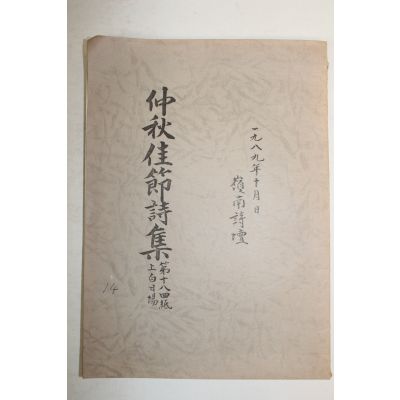 一九八九年十月 日
嶺南詩壇
仲秋佳節詩集
第十八回紙
上白日場
14